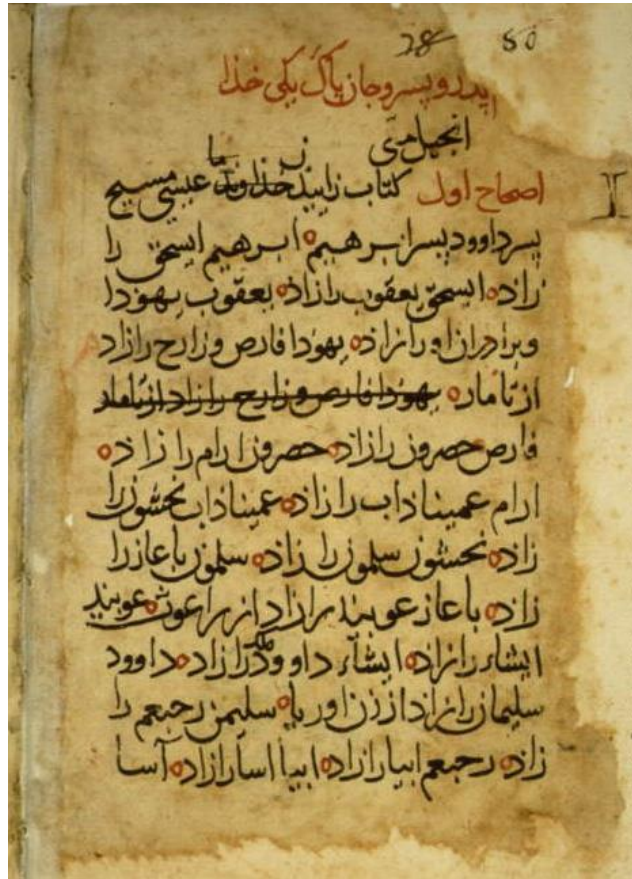 28 50
اپدر و پسر و جان پاک یکی خذا
انجیل متی
اصحاح اول کتاب زایید خذاوند ما عیسی مسیح
پسر داوود پسر ابرهیم ابرهیم ایسحق را
زاد ایسحق یعقوب را زاذ یعقوب یهوذا
و براذران او را زاذ یهوذا فارص و زارح را زاد
از تامار یهوذا فارص و زارح را زاد از تامار
فارص حصرون را زاد حصرون ارام را زاذ
ارام عمیناذاب را زاذ عمیناذاب نحشون را
زاذ نحشون سلمون را زاذ سلمون باعاز را
زاذ باعاز عوبید را زاد از راعوث عوبید
ایشاء را زاذ ایشاء داوود ملک را زاد داوود
سلیمان را زاد از زن اوریا سلیمن رحبعم را
زاذ رحبعم ابیا را زاذ ابیا اسا را زاذ آسا